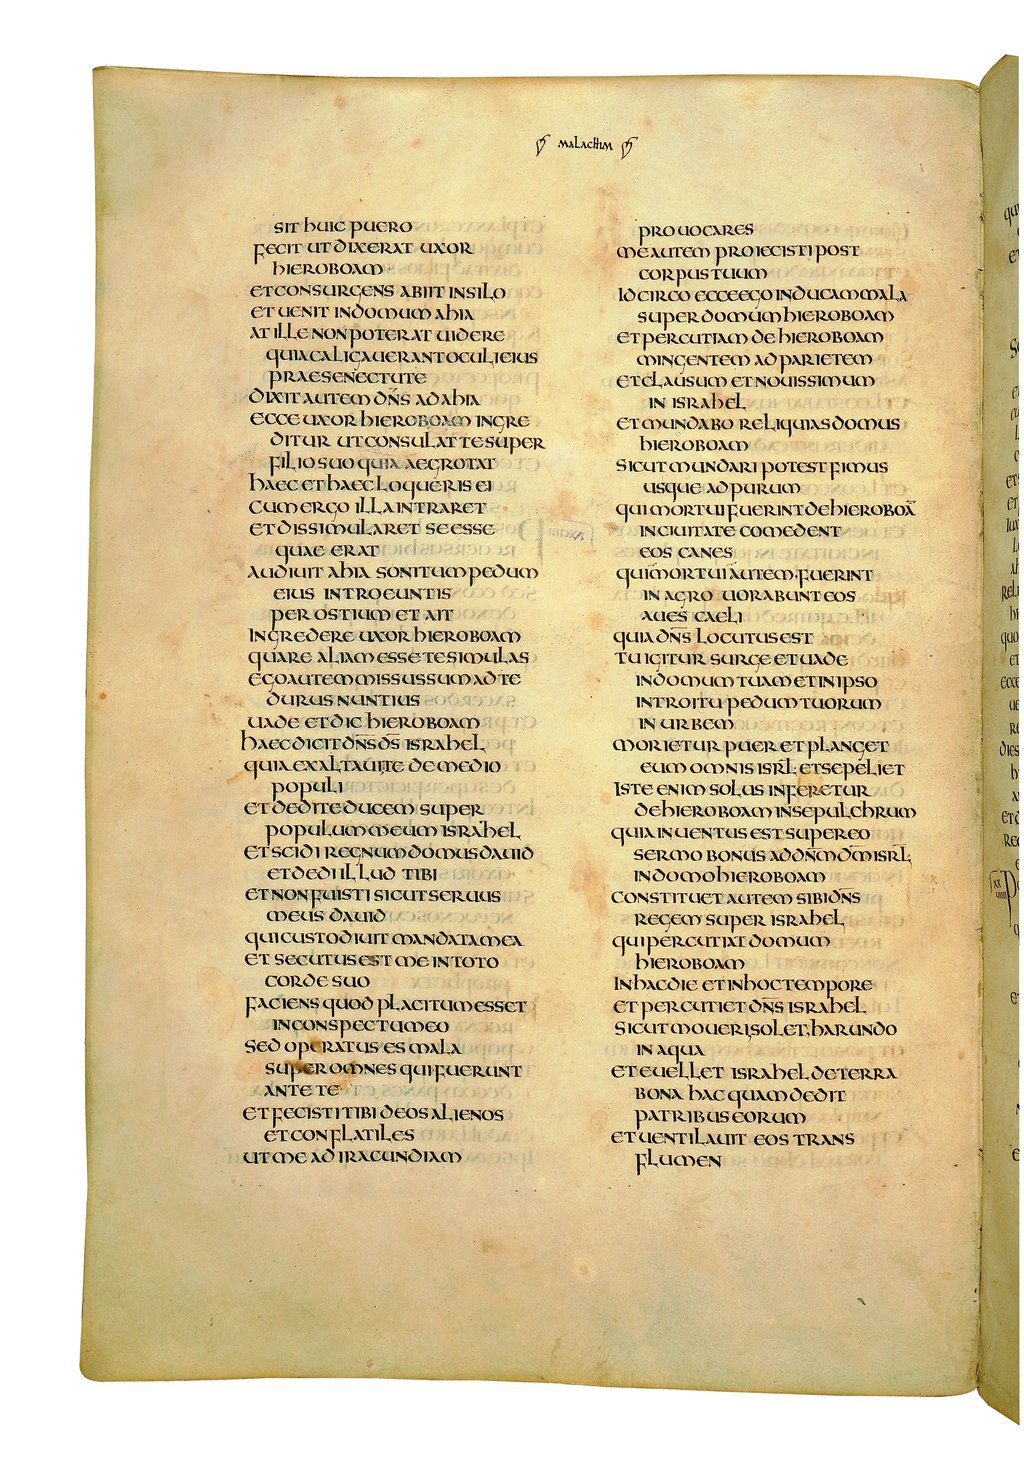 MALACHIM
SIT HUIC PUERO
FECIT UT DIXERAT UXOR
HIEROBOAM
ET CONSURGENS ABIIT IN SILO
ET UENIT IN DOMUM AHIA
AT ILLE NON POTERAT UIDERE
QUIA CALIGAUERANT OCULI EIUS
PRAE SENECTUTE
DIXIT AUTEM DN̄S AD AHIA
ECCE UXOR HIEROBOAM INGRE
DITUR UT CONSULAT TE SUPER
FILIO SUO QUIA AEGROTAT
HAEC ET HAEC LOQUERIS EI
CUM ERGO ILLA INTRARET
ET DISSIMULARET SE ESSE
QUAE ERAT
AUDIUIT AHIA SONITUM PEDUM
EIUS INTROEUNTIS
PER OSTIUM ET AIT
INGREDERE UXOR HIEROBOAM
QUARE ALIAM ESSE TE SIMULAS
EGO AUTEM MISSUS SUM AD TE
DURUS NUNTIUS
UADE ET DIC HIEROBOAM
HAEC DICIT DN̄S D̄S ISRAHEL
QUIA EXALTAUI TE DE MEDIO
POPULI
ET DEDI TE DUCEM SUPER
POPULUM MEUM ISRAHEL
ET SCIDI REGNUM DOMUS DAUID
ET DEDI ILLUD TIBI
ET NON FUISTI SICUT SERUUS
MEUS DAUID
QUI CUSTODIUIT MANDATA MEA
ET SECUTUS EST ME IN TOTO
CORDE SUO
FACIENS QUOD PLACITUM ESSET
IN CONSPECTU MEO
SED OPERATUS ES MALA
SUPER OMNES QUI FUERUNT
ANTE TE
ET FECISTI TIBI DEOS ALIENOS
ET CONFLATILES
UT ME AD IRACUNDIAM
PROUOCARES
ME AUTEM PROIECISTI POST
CORPUS TUUM
IDCIRCO ECCE EGO INDUCAM MALA
SUPER DOMUM HIEROBOAM
ET PERCUTIAM DE HIEROBOAM
MINGENTEM AD PARIETEM
ET CLAUSUM ET NOUISSIMUM
IN ISRAHEL
ET MUNDABO RELIQUIAS DOMUS
HIEROBOAM
SICUT MUNDARI POTEST FIMUS
USQUE AD PURUM
QUI MORTUI FUERINT DE HIEROBOĀ
IN CIUITATE COMEDENT
EOS CANES
QUI MORTUI AUTEM FUERINT
IN AGRO UORABUNT EOS
AUES CAELI
QUIA DN̄S LOCUTUS EST
TU IGITUR SURGE ET UADE
IN DOMUM TUAM ET IN IPSO
INTROITU PEDUM TUORUM
IN URBEM
MORIETUR PUER ET PLANGET
EUM OMNIS ISRL̄ ET SEPELIET
ISTE ENIM SOLUS INFERETUR
DE HIEROBOAM IN SEPULCHRUM
QUIA INUENTUS EST SUPER EO
SERMO BONUS AD DN̄M D̄M ISRL̄
IN DOMO HIEROBOAM
CONSTITUET AUTEM SIBI DN̄S
REGEM SUPER ISRAHEL
QUI PERCUTIAT DOMUM
HIEROBOAM
IN HAC DIE ET IN HOC TEMPORE
ET PERCUTIET DN̄S ISRAHEL
SICUT MOUERI SOLET HARUNDO
IN AQUA
ET EUELLET ISRAHEL DE TERRA
BONA HAC QUAM DEDIT
PATRIBUS EORUM
ET UENTILAUIT EOS TRANS
FLUMEN